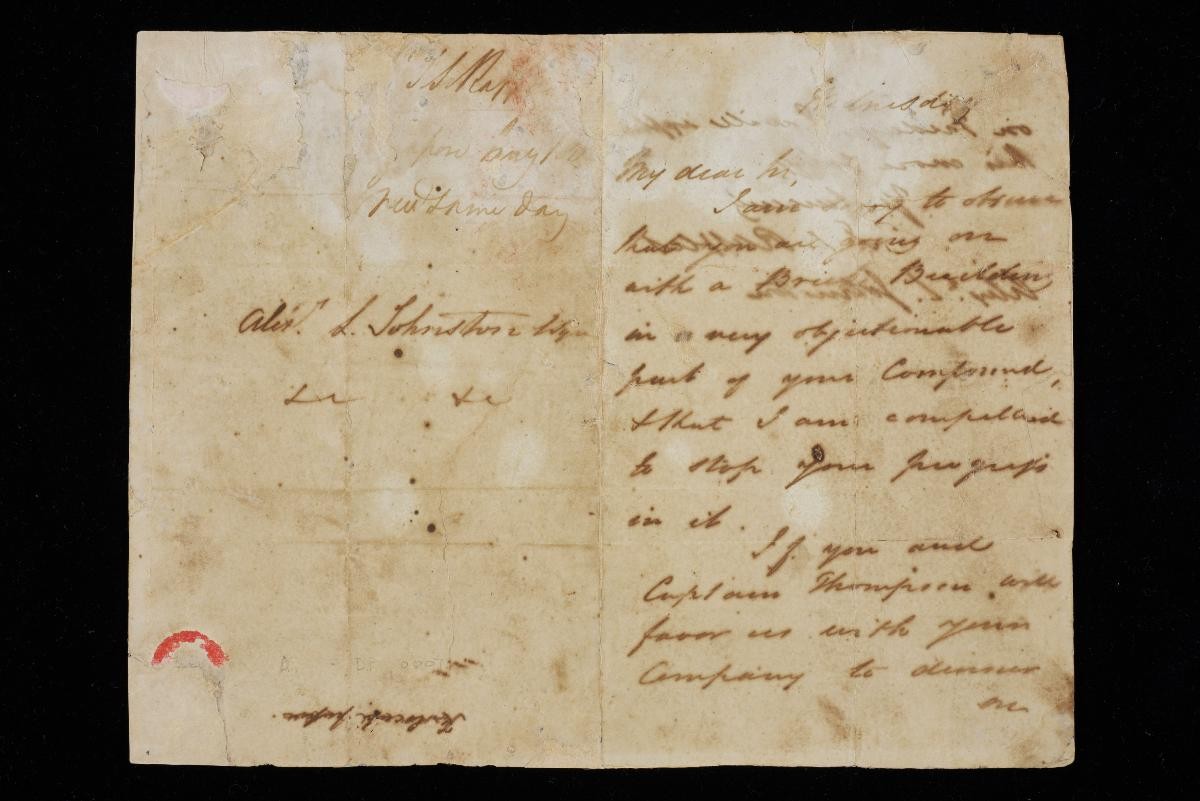 T S Raff
Augt
recd same day
Alexr. L. Johnston Esqr
&c &c
Wednesday
My dear Sir,
I am sorry to observe
that you are going on
with a Brick Building
in a very objectionable
part of your Compound,
& that I am compelled
to stop your progress
in it.
If you and
Captain Thompson will
favor us with your
Company to dinner
on